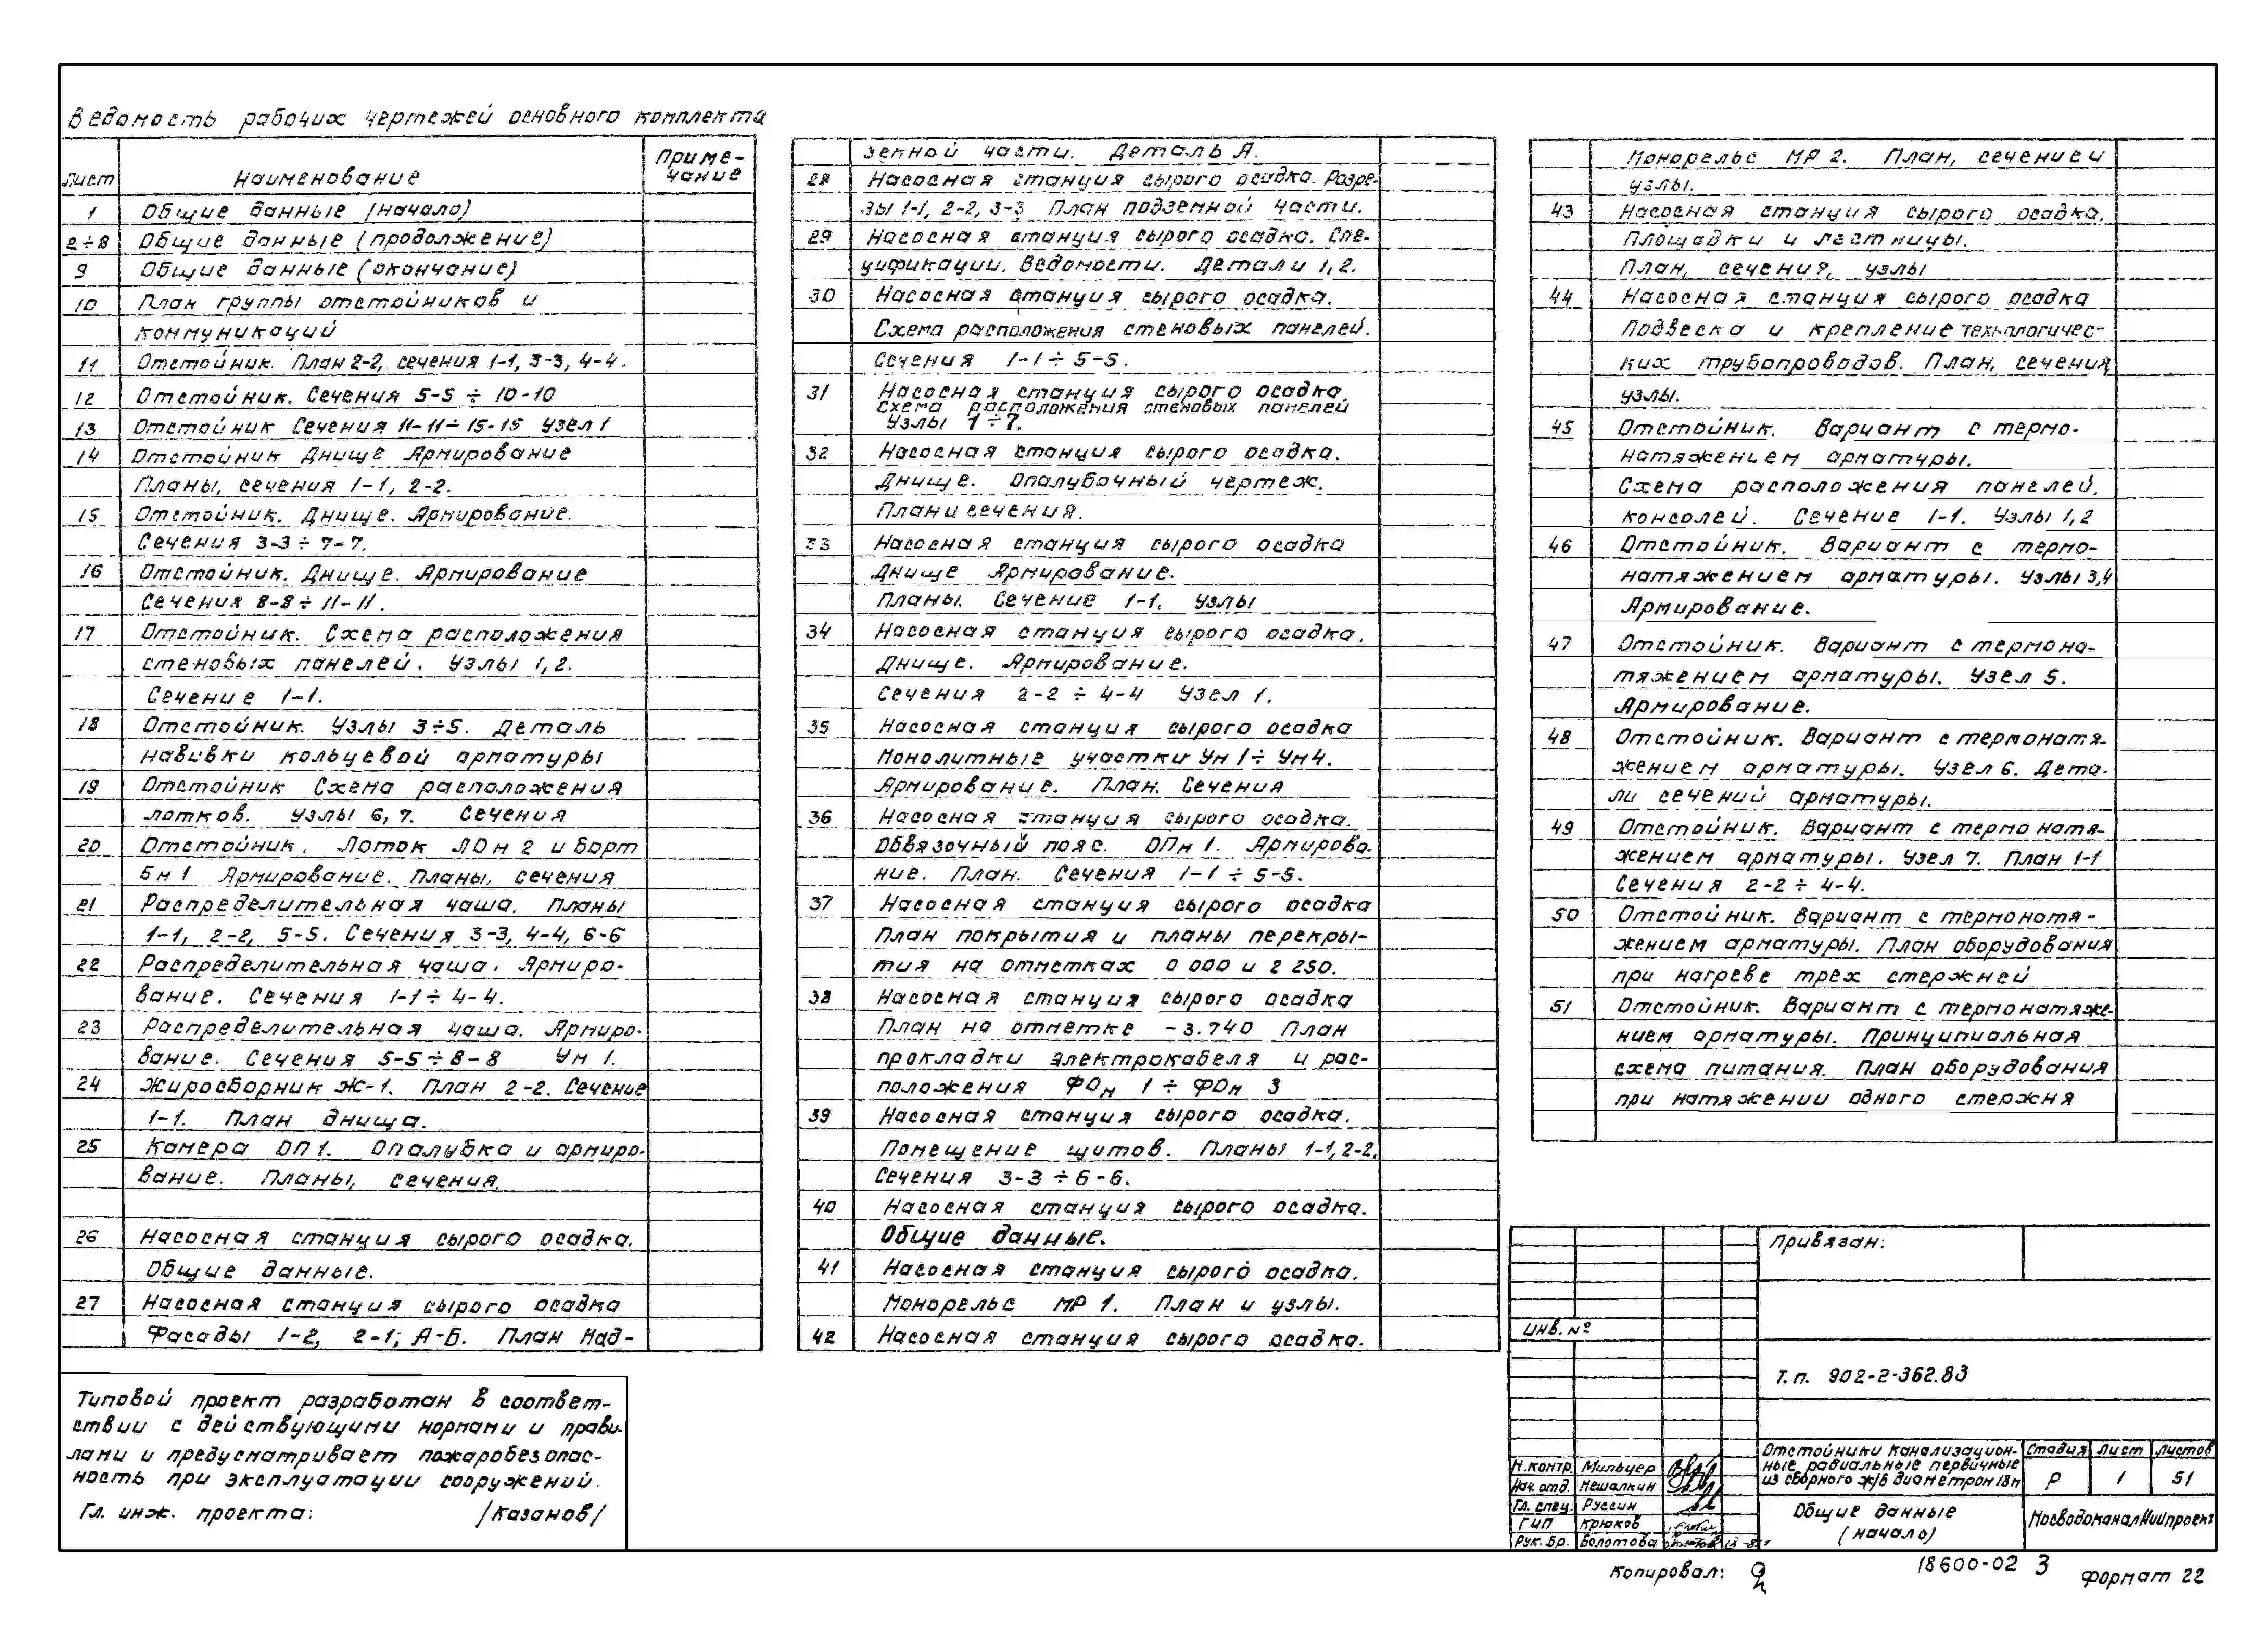 Ведомость рабочих чертежей основного комплекта
Лист Наименование Приме-
чание
1 Общие данные (начало)
2÷8 Общие данные (продолжение)
9 Общие данные (окончание)
10 План группы отстойников и
коммуникаций
11 Отстойник. План 2-2, сечения 1-1, 3-3, 4-4.
12 Отстойник. Сечения 5-5 ÷ 10-10
13 Отстойник Сечения 11-11÷15-15 Узел 1
14 Отстойник Днище Армирование
Планы, сечения 1-1, 2-2.
15 Отстойник. Днище. Армирование.
Сечения 3-3÷7-7.
16 Отстойник. Днище. Армирование
Сечения 8-8÷11-11.
17 Отстойник. Схема расположения
стеновых панелей. Узлы 1,2.
Сечение 1-1.
18 Отстойник. Узлы 3÷5. Деталь
навивки кольцевой арматуры
19 Отстойник Схема расположения
лотков. Узлы 6, 7. Сечения
20 Отстойник. Лоток ЛОм 2 и Борт
Бм 1 Армирование. Планы, сечения
21 Распределительная чаша. Планы
1-1, 2-2, 5-5. Сечения 3-3, 4-4, 6-6
22 Распределительная чаша. Армиро-
вание. Сечения 1-1÷4-4.
23 Распределительная чаша. Армиро-
вание. Сечения 5-5÷8-8 Ум 1.
24 Жиросборник Ж-1. План 2-2. Сечение
1-1. План днища.
25 Камера ОП1. Опалубка и армиро-
вание. Планы, сечения.
26 Насосная станция сырого осадка.
Общие данные.
27 Насосная станция сырого осадка
Фасады 1-2, 2-1; А-Б. План Над-
земной части. Деталь А.
28 Насосная станция сырого осадка. Разре-
зы 1-1, 2-2, 3-3 План подземной части.
29 Насосная станция сырого осадка. Спе-
цификации. Ведомости. Детали 1,2.
30 Насосная станция сырого осадка.
Схема расположения стеновых панелей.
Сечения 1-1÷5-5.
31 Насосная станция сырого осадка.
Схема расположения стеновых панелей
Узлы 1÷7.
32 Насосная станция сырого осадка.
Днище. Опалубочный чертеж.
План и сечения.
33 Насосная станция сырого осадка
Днище Армирование.
Планы. Сечение 1-1. Узлы
34 Насосная станция сырого осадка.
Днище. Армирование.
Сечения 2-2 ÷ 4-4 Узел 1.
35 Насосная станция сырого осадка
Монолитные участки Ум 1÷ Ум4.
Армирование. План. Сечения
36 Насосная станция сырого осадка.
Обвязочный пояс. ОПм 1. Армирова-
ние. План. Сечения 1-1 ÷ 5-5.
37 Насосная станция сырого осадка
План покрытия и планы перекры-
тия на отметках 0 000 и 2 250.
38 Насосная станция сырого осадка
План на отметке -3.740 План
прокладки электрокабеля и рас-
положения ФОм 1 ÷ ФОм 3
39 Насосная станция сырого осадка.
Помещение щитов. Планы 1-1, 2-2.
Сечения 3-3 ÷6-6.
40 Насосная станция сырого осадка.
Общие данные.
41 Насосная станция сырого осадка.
Монорельс МР 1. План и узлы.
42 Насосная станция сырого осадка.
Монорельс МР 2. План, сечение и
узлы.
43 Насосная станция сырого осадка.
Площадки и лестницы.
План, сечения, узлы
44 Насосная станция сырого осадка
Подвеска и крепление технологичес-
ких трубопроводов. План, сечения,
узлы.
45 Отстойник. Вариант с термо-
натяжением арматуры.
Схема расположения панелей,
консолей. Сечение 1-1. Узлы 1,2
46 Отстойник. Вариант с термо-
натяжением арматуры. Узлы 3,4
Армирование.
47 Отстойник. Вариант с термона-
тяжением арматуры. Узел 5.
Армирование.
48 Отстойник. Вариант с термонатя-
жением арматуры. Узел 6. Дета-
ли сечений арматуры.
49 Отстойник. Вариант с термонатя-
жением арматуры. Узел 7. План 1-1
Сечения 2-2÷ 4-4.
50 Отстойник. Вариант с термонатя-
жением арматуры. План оборудования
при нагреве трех стержней
51 Отстойник. Вариант с термонатяже-
нием арматуры. Принципиальная
схема питания. План оборудования
при натяжении одного стержня
Типовой проект разработан в соответ-
ствии с действующими нормами и прави-
лами и предусматривает пожаробезопас-
ность при эксплуатации сооружений.
Гл. инж. проекта: /Казанов/
Привязан:
Инв. №
Т.п. 902-2-362.83
Н.контр. Мильцер
Нач. отд. Мешалкин
Гл. спец. Руссин
ГИП Крюков
Рук. Бр. Болотова
Отстойники канализацион-
ные радиальные первичные
из сборного ж/б диаметром 18м
Стадия Лист Листов
Р 1 51
Общие данные
(начало)
МосводоканалНИИпроект
Копировал:
18600-02 3
Формат 22